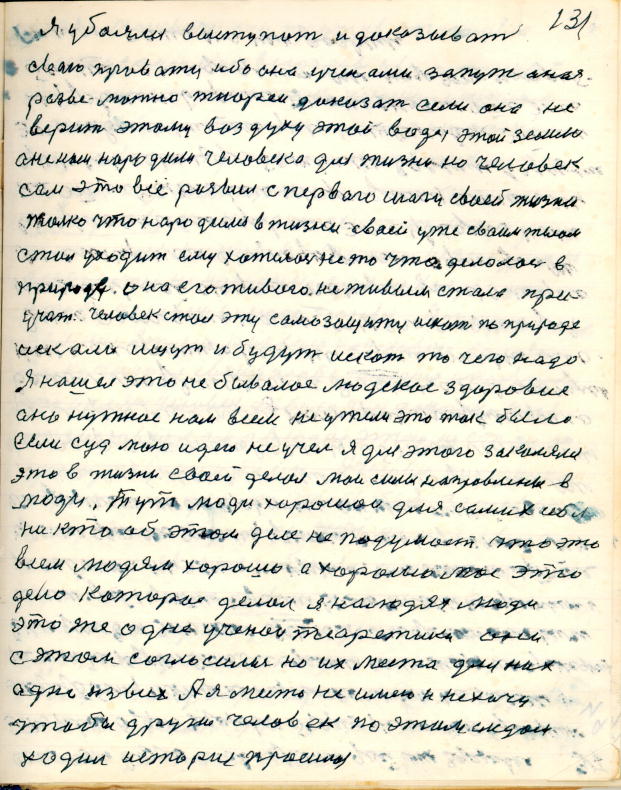 131
я убоялся выступат и доказыват
сваго правату ибо она учен ами запут аная
разве можно тиореи доказат если она не
верит этому воздуху этой воды этой землю
ане нас народили человека для жизни но человек
сам это всё развил с перваго шагу своей жизни
толко что народился в жизни своей уже своим телом
стал уходит ему хотелос не то что делолос в
природе. она его живого не живым стала при
учат. человек стал эту самозащиту искат по природе
искали ищут и будут искат то чего надо
Я нашел это не бывалое людское здоровие
ано нужное нам всем неужели это так было
если суд мою идею не учел я для этого закалялся
это в жизни своей делал мои силы направлены в
люди. Тут люди хорошои для самих себя
никто об этом деле не подумает что это
всем людям хорошо а хорошо мое это
дело которое делал я на людях люди
это же одне ученои теаретики они
с этом согласилис но их места для них
адно из всих А я место не имею и не хачу
чтобы други человек по этом следам
ходил истории просилис